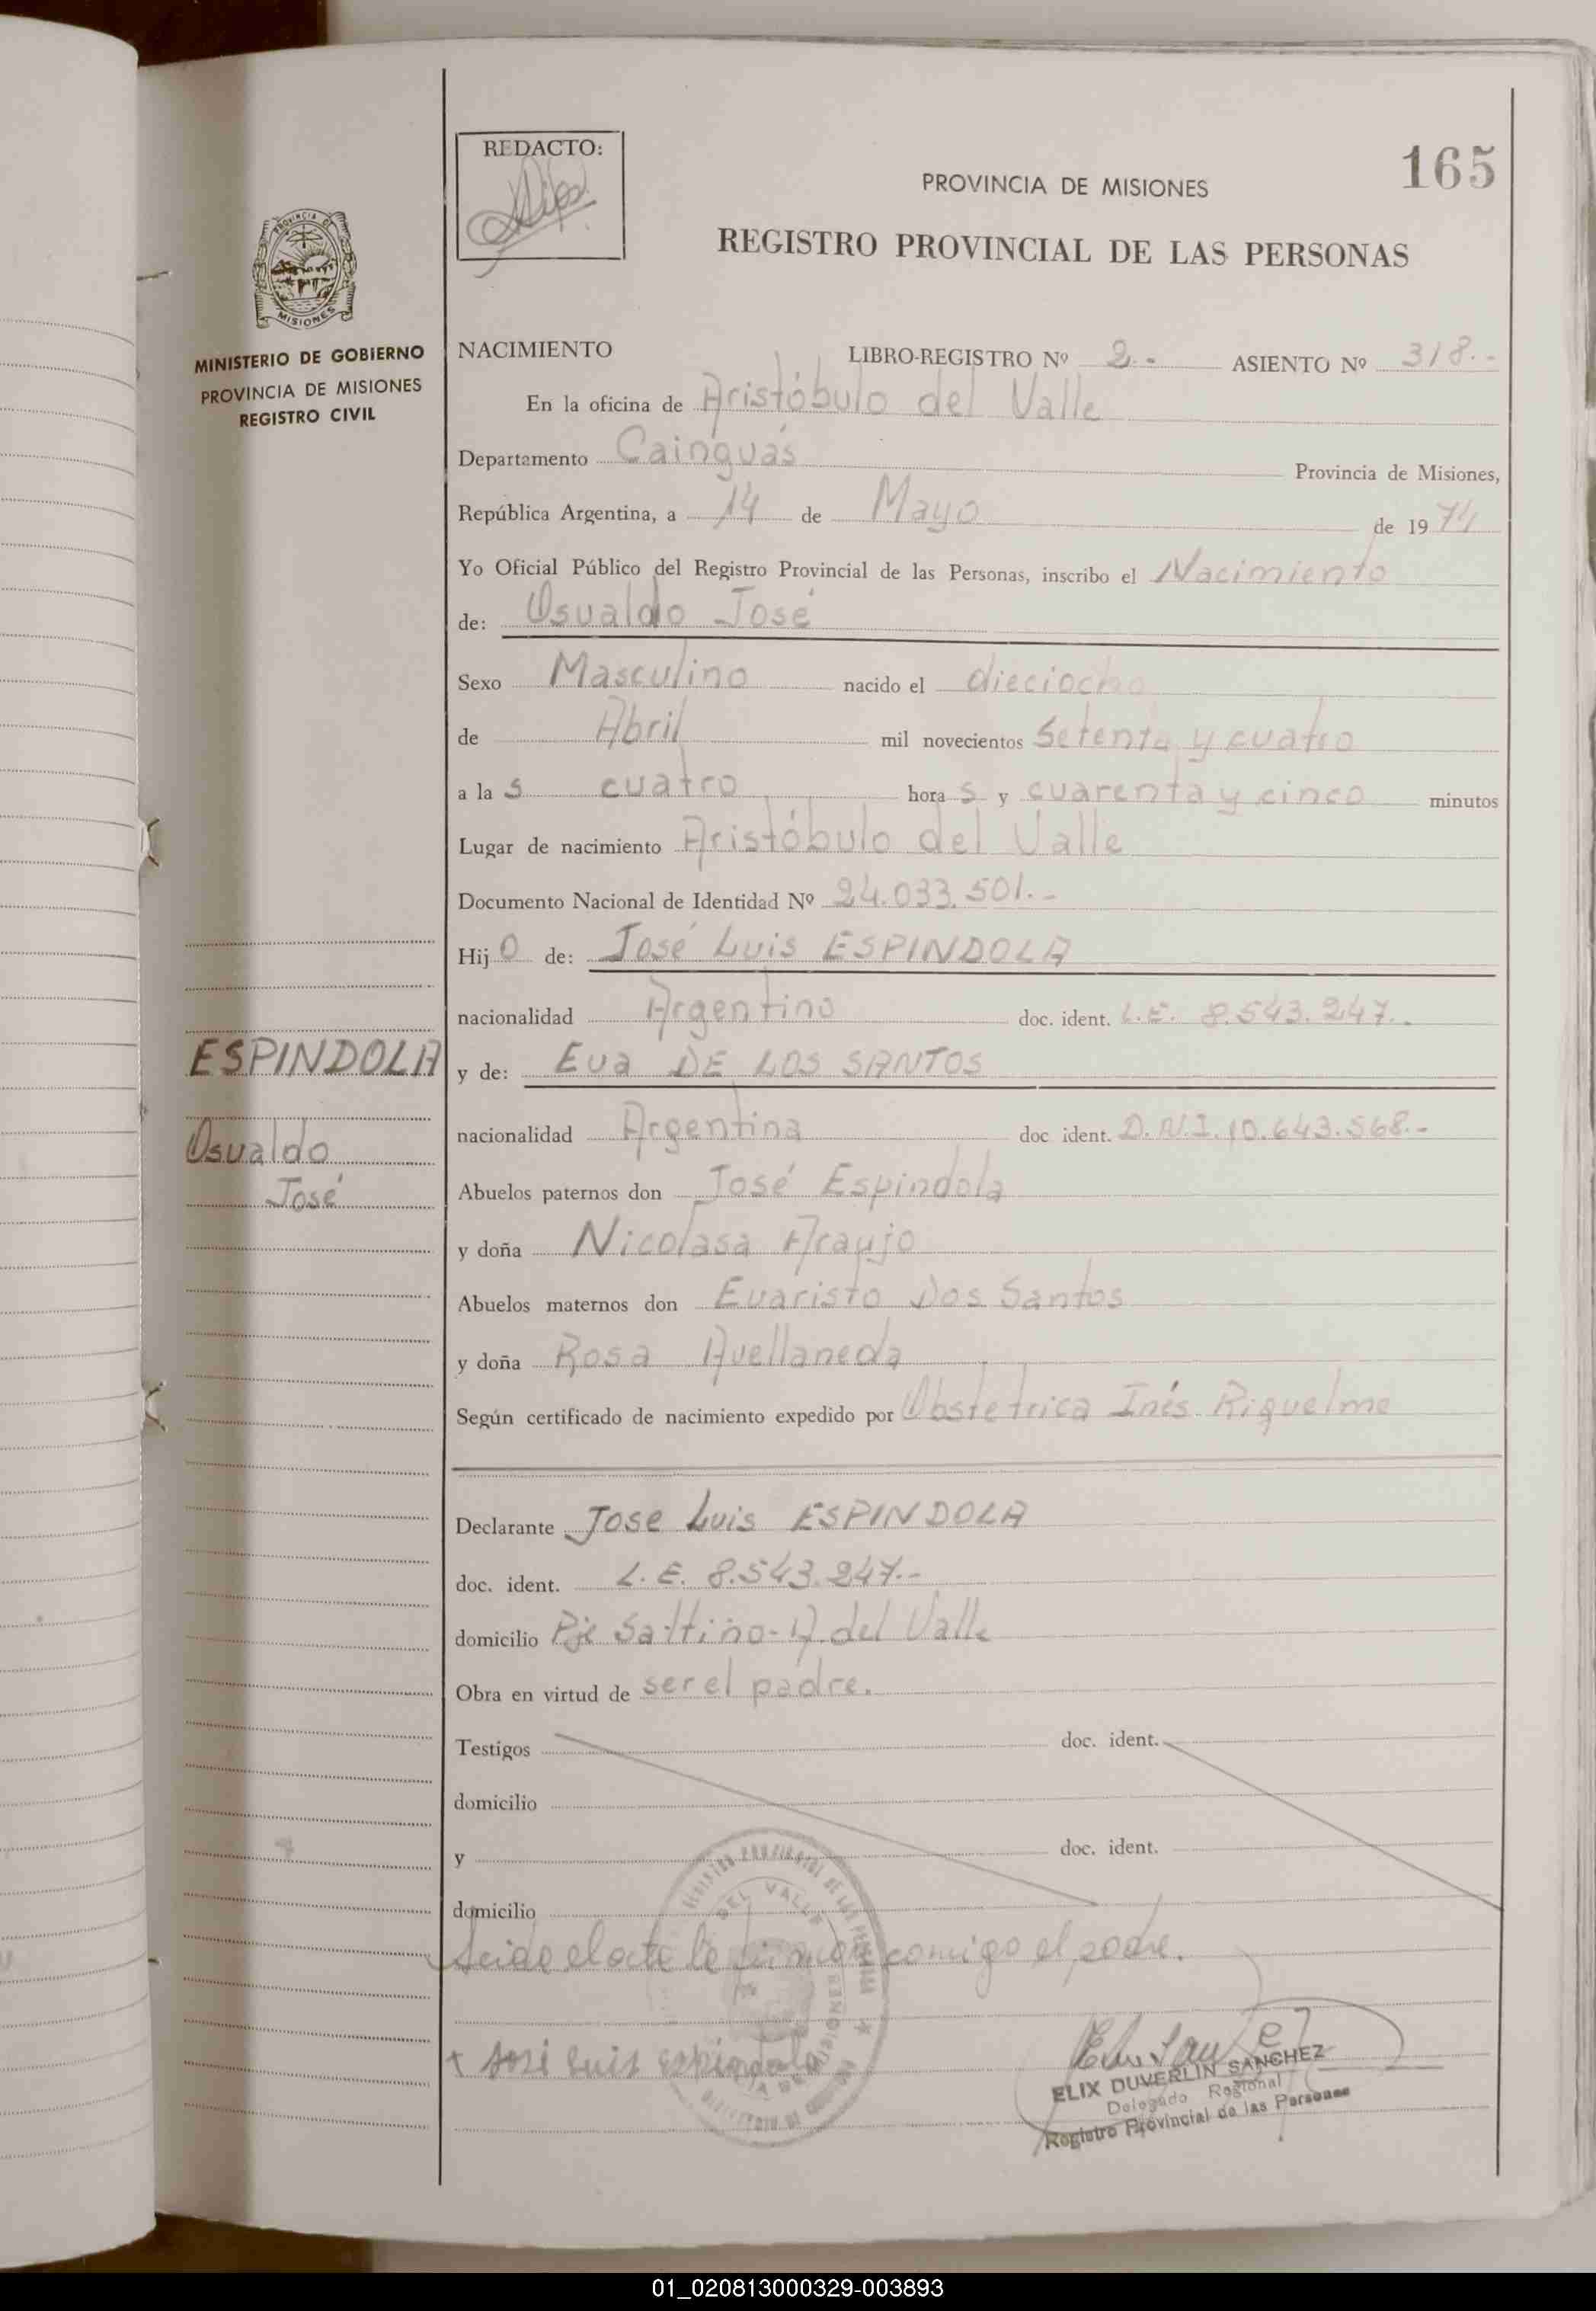 REDACTO:
165
PROVINCIA DE MISIONES
REGISTRO PROVINCIAL DE LAS PERSONAS
PROVINCIA DE
MISIONES
MINISTERIO DE GOBIERNO
PROVINCIA DE MISIONES
REGISTRO CIVIL
NACIMIENTO LIBRO-REGISTRO Nº 2.- ASIENTO Nº 318.-
En la oficina de Aristóbulo del Valle
Departamento Cainguás Provincia de Misiones,
República Argentina, a 14 de Mayo de 1974
Yo Oficial Público del Registro Provincial de las Personas, inscribo el Nacimiento
de: Osvaldo José
Sexo Masculino nacido el dieciocho
de Abril mil novecientos Setenta y cuatro
a la s cuatro hora s y cuarenta y cinco minutos
Lugar de nacimiento Aristóbulo del Valle
Documento Nacional de Identidad Nº 24.033.501.-
Hij o de: José Luis ESPINDOLA
nacionalidad Argentino doc. ident. L.E. 8.543.247.-
ESPINDOLA
y de: Eva DE LOS SANTOS
Osvaldo
José
nacionalidad Argentina doc ident. D.N.I. 10.643.568.-
Abuelos paternos don José Espindola
y doña Nicolasa Araujo
Abuelos maternos don Evaristo Dos Santos
y doña Rosa Avellaneda
Según certificado de nacimiento expedido por Obstetrica Inés Riquelme
Declarante Jose Luis ESPINDOLA
doc. ident. L.E. 8.543.247.-
domicilio Pje Saltiño-A. del Valle
Obra en virtud de ser el padre.
Testigos doc. ident.
domicilio
y doc. ident.
domicilio
el acta la firman comigo el padre.
José Luis Espindola
ELIX DUVERLIN SANCHEZ
Delegado Regional
Registro Provincial de las Personas
01_020813000329-003893